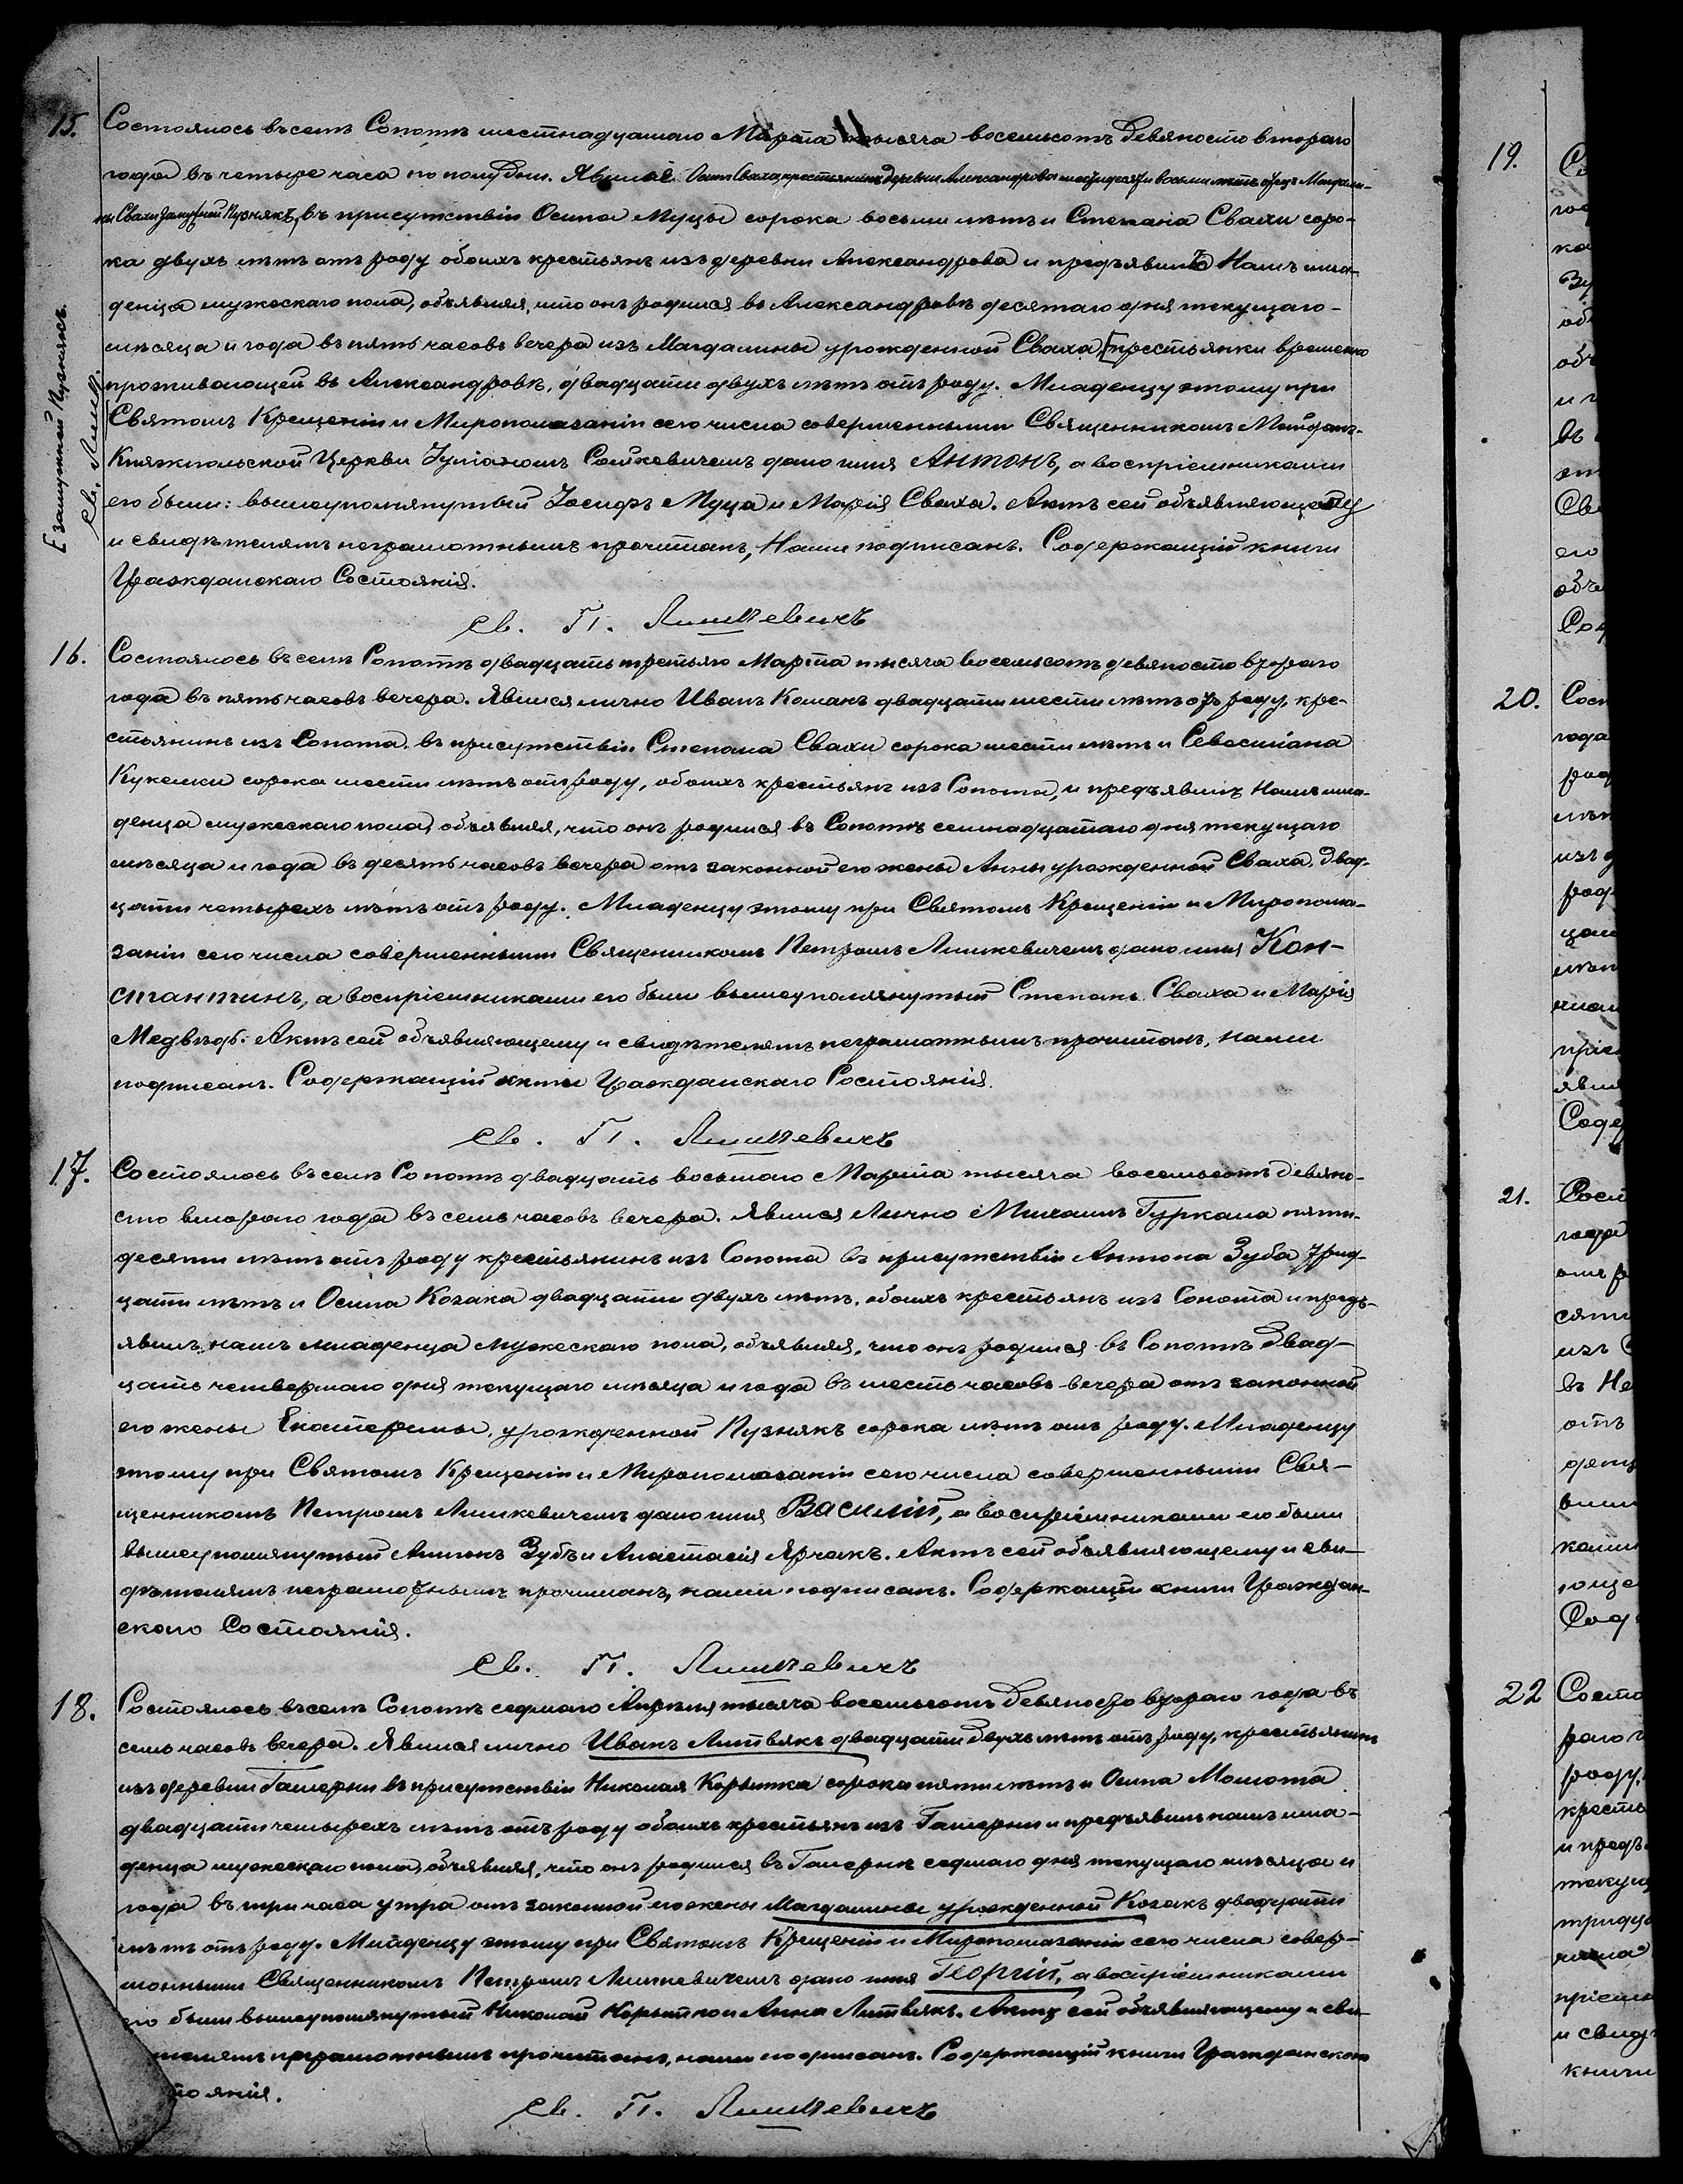 15. Состоялось въ селѣ Сопотѣ шестнадцатаго Марта тысяча восемьсотъ девяносто втораго
года въ четыре часа по полудни. Явился Осипъ Сваха, крестьянинъ деревни Александрова шестидесяти восьми лѣтъ дѣдъ Магдали-
ны Свахи замужней Пузнякъ, въ присутствіи Осипа Муцы сорока восьми лѣтъ и Степана Свахи соро-
ка двухъ лѣтъ отъ роду обоихъ крестьянъ изъ деревни Александрова и предъявилъ Намъ мла-
денца мужескаго пола, объявляя, что онъ родился въ Александровѣ десятаго дня текущаго
мѣсяца и года въ пять часовъ вечера изъ Магдалины урожденной Сваха, [крестьянки временно
проживающей въ Александровѣ, двадцати двухъ лѣтъ отъ роду. Младенцу этому при
Святомъ Крещеніи и Миропомазаніи сего числа совершенными Священникомъ Майданъ-
Княжпольской Церкви Іуліаномъ Сошкевичемъ дано имя Антонъ, а воспріемниками
его были: вышеупомянутый Іосифъ Муца и Марія Сваха. Актъ сей объявляющему
и свидѣтелямъ неграмотнымъ прочитанъ, Нами подписанъ. Содержащій книги
Гражданскаго Состоянія.
Св. П. Лишкевичъ
[замужней Пузнякъ.
Св. Лишк.
16. Состоялось въ селѣ Сопотѣ двадцать третьяго Марта тысяча восемьсотъ девяносто втораго
года въ пять часовъ вечера. Явился лично Иванъ Команъ двадцати шести лѣтъ отъ роду, кре-
стьянинъ изъ Сопота, въ присутствіи Степана Свахи сорока шести лѣтъ и Севастіана
Кукелки сорока шести лѣтъ отъ роду, обоихъ крестьянъ изъ Сопота, и предъявилъ Намъ мла-
денца мужескаго пола, объявляя, что онъ родился въ Сопотѣ семнадцатаго дня текущаго
мѣсяца и года въ десять часовъ вечера отъ законной его жены Анны урожденной Сваха, двад-
цати четырехъ лѣтъ отъ роду. Младенцу этому при Святомъ Крещеніи и Миропома-
заніи сего числа совершенными Священникомъ Петромъ Лишкевичемъ дано имя Кон-
стантинъ, а воспріемниками его были вышеупомянутый Степанъ Сваха и Марія
Медвѣдь. Актъ сей объявляющему и свидѣтелямъ неграмотнымъ прочитанъ, нами
подписанъ. Содержащій книги Гражданскаго Состоянія.
Св. П. Лишкевичъ
17. Состоялось въ селѣ Сопотѣ двадцать восьмаго Марта тысяча восемьсотъ девяно-
сто втораго года въ семь часовъ вечера. Явился лично Михаилъ Гуркала пяти-
десяти лѣтъ отъ роду крестьянинъ изъ Сопота въ присутствіи Антона Зуба трид-
цати лѣтъ и Осипа Козака двадцати двухъ лѣтъ, обоихъ крестьянъ изъ Сопота и предъ-
явилъ намъ младенца мужескаго пола, объявляя, что онъ родился въ Сопотѣ двад-
цать четвертаго дня текущаго мѣсяца и года въ шесть часовъ вечера отъ законной
его жены Екатерины, урожденной Пузнякъ сорока лѣтъ отъ роду. Младенцу
этому при Святомъ Крещеніи и Миропомазаніи сего числа совершенными Свя-
щенникомъ Петромъ Лишкевичемъ дано имя Василій, а воспріемниками его были
вышеупомянутый Антонъ Зубъ и Анастасія Ярчакъ. Актъ сей объявляющему и сви-
дѣтелямъ неграмотнымъ прочитанъ, нами подписанъ. Содержащій книги Граждан-
скаго Состоянія.
Св. П. Лишкевичъ
18. Состоялось въ селѣ Сопотѣ седмаго Апрѣля тысяча восемьсотъ девяносто втораго года въ
семь часовъ вечера. Явился лично Иванъ Литвякъ двадцати двухъ лѣтъ отъ роду, крестьянинъ
изъ деревни Гамерни въ присутствіи Николая Корытка сорока пяти лѣтъ и Осипа Момота
двадцати четырехъ лѣтъ отъ роду обоихъ крестьянъ изъ Гамерни и предъявилъ намъ мла-
денца мужескаго пола, объявляя, что онъ родился въ Гамернѣ седмаго дня текущаго мѣсяца и
года въ три часа утра отъ законной его жены Магдалины урожденной Козакъ двадцати
лѣтъ отъ роду. Младенцу этому при Святомъ Крещеніи и Миропомазаніи сего числа совер-
шонными Священникомъ Петромъ Лишкевичемъ дано имя Георгій, а воспріемниками
его были вышеупомянутый Николай Корытко и Анна Литвякъ. Актъ сей объявляющему и сви-
телямъ неграмотнымъ прочитанъ, нами подписанъ. Содержащій книги Гражданскаго
тоянія.
Св. П. Лишкевичъ
19.
20.
21.
22